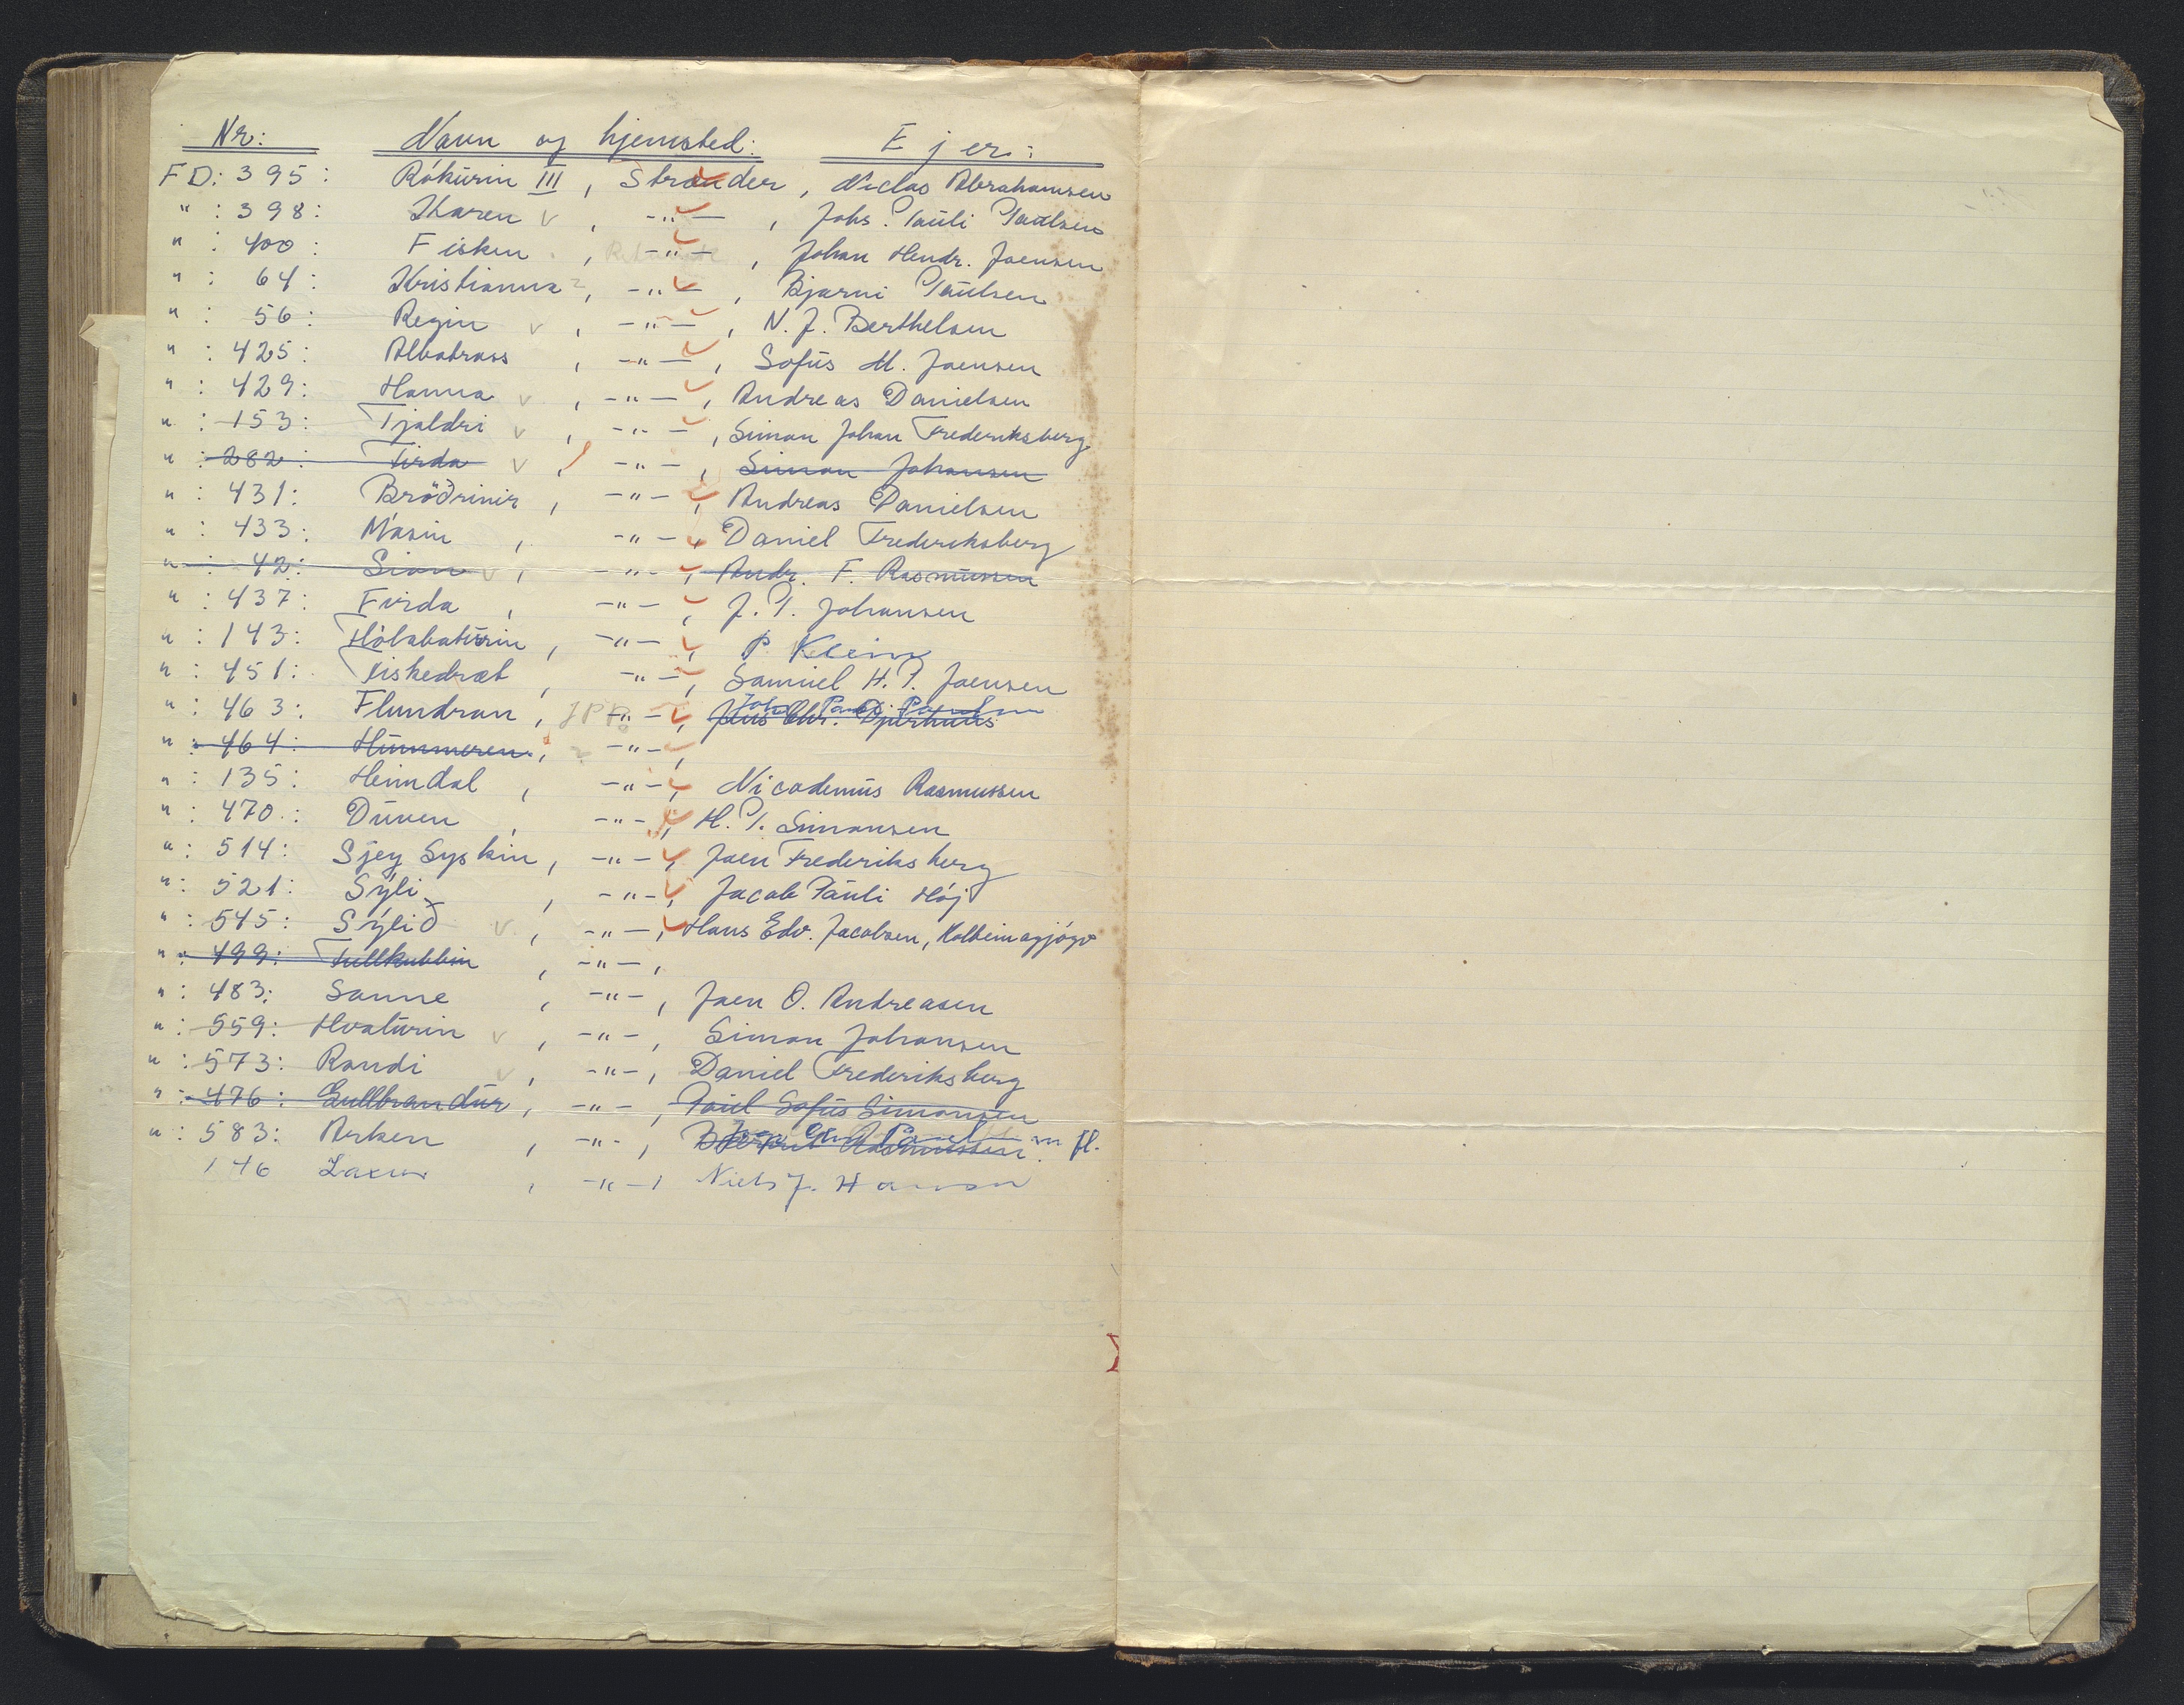 Nr: Navn og hjemsted: Ejer:
FD: 395: Rókúrin III, Strænder, Niclas Abrahamsen
" : 398: Karen v, -"-, Johs. Paüli Paülsen
" : 400: Fisken, -"-, Johan Hendr. Joensen
" : 64: Kristianna, -"-, Bjarni Paülsen
" : 56: Regin v, -"-, N. J. Berthelsen
" : 425: Albatross, -"-, Sofüs M. Joensen
" : 429: Hanna v, -"-, Andreas Danielsen
" : 153: Tjaldri v, -"-, Simon Johan Frederiksberg
" : 282: Firda v, -"-, Simon Johansen
" : 431: Brøðrinir, -"-, Andreas Danielsen
" : 433: Másin, -"-, Daniel Frederiksberg
" : 42: Sion v, -"-, Andr. F. Rasmüssen
" : 437: Firda, -"-, J. P. Johansen
" : 143: -"-, P Klein
" : 451: Fiskedræt, -"-, Samüel H. P. Joensen
" : 463: Flundran, JPP -"-, Jens Chr. Djurhuus
" : 464: Hümmeren, -"-,
" : 135: Heimdal, -"-, Nicodemüs Rasmussen
" : 470: Düven, -"-, H. P. Simonsen
" : 514: Sjey Syskin, -"-, Joen Frederiksberg
" : 521: Sýli, -"-, Jacob Paüli Høj
" : 545: Sýlið v, -"-, Hans Edv. Jacobsen, Kolbeinagjógv
" : 499: -"-,
" : 483: Sanne, -"-, Joen O. Andreasen
" : 559: Hvatürin v, -"-, Simon Johansen
" : 573: Randi v, -"-, Daniel Frederiksberg
" : 476: Gullbrandür, -"-, Poül Sofüs Simonsen
" : 583: Arken, -"-, Rasmussen m fl.
146 -"-, Niels J. Hansen